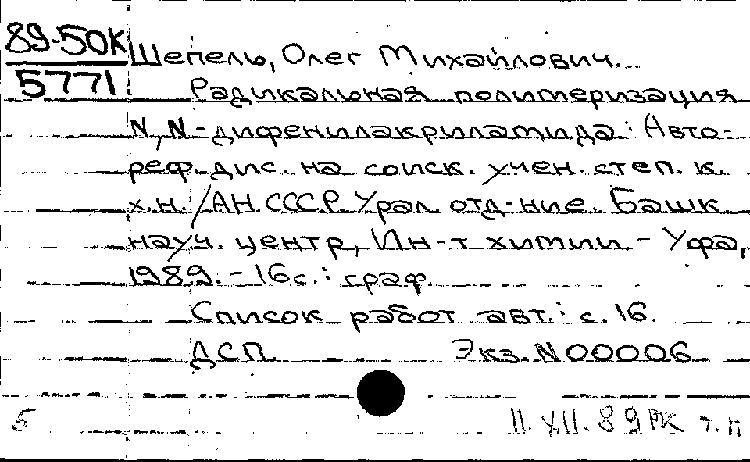 89-50К
5771
Шепель, Олег Михайлович.
Радикальная полимеризация
N,N-дифенилакриламида: Авто-
реф. дис. на соиск. учен. степ. к.
х.н. /АН СССР. Урал. отд-ние. Башк.
науч. центр, Ин-т химии. - Уфа,
1989. - 16с.: граф.
Список работ авт.: с. 16.
ДСП Экз. N 00006
5 11.XII.89 РК т. п